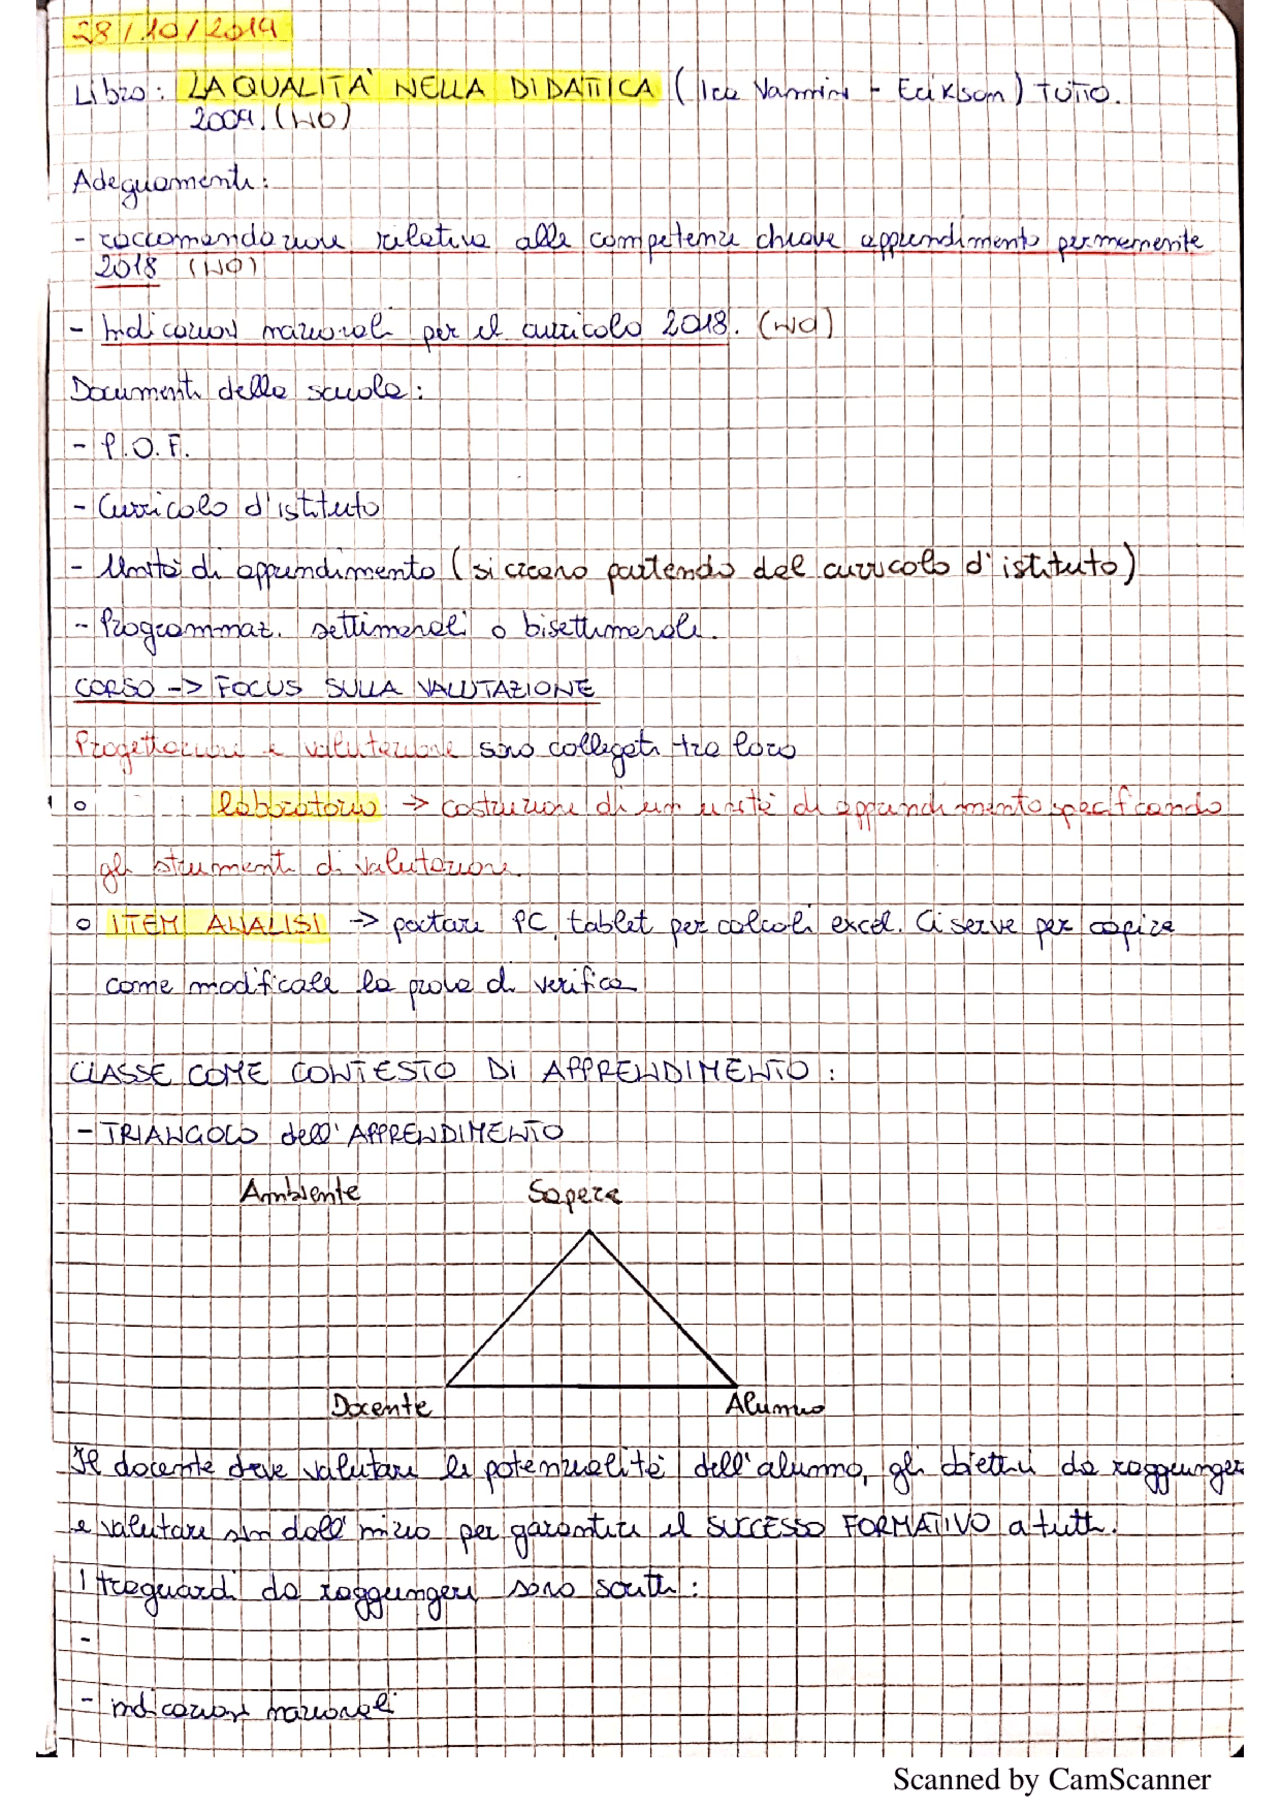 28/10/2019
Libro: LA QUALITA' NELLA DIDATTICA (Ira Vannini - Erikson) TUTTO.
2009. (NO)
Adeguamenti:
- raccomandazione relativa alle competenze chiave apprendimento permemente
2018 (NO)
- Indicazioni nazionali per il curricolo 2018. (NO)
Documenti della scuola:
- P.O.F.
- Curricolo d'istituto
- Unità di apprendimento (si creano partendo dal curricolo d'istituto)
- Programmaz. settimanali o bisettimanali.
CORSO -> FOCUS SULLA VALUTAZIONE
Progettazione e valutazione sono collegati tra loro
laboratorio -> costruzione di un unità di apprendimento specificando
gli strumenti di valutazione.
ITEM ANALISI -> portare PC, tablet per calcoli excel. Ci serve per capire
come modificare la prova di verifica
CLASSE COME CONTESTO DI APPRENDIMENTO:
- TRIANGOLO dell'APPRENDIMENTO
Ambiente Sapere
Docente Alunno
Il docente deve valutare le potenzialità dell'alunno, gli obiettivi da raggiunger
e valutare sin dall'inizio per garantire il SUCCESSO FORMATIVO a tutti.
I traguardi da raggiungere sono scritti:
-
- indicazioni nazionali
Scanned by CamScanner